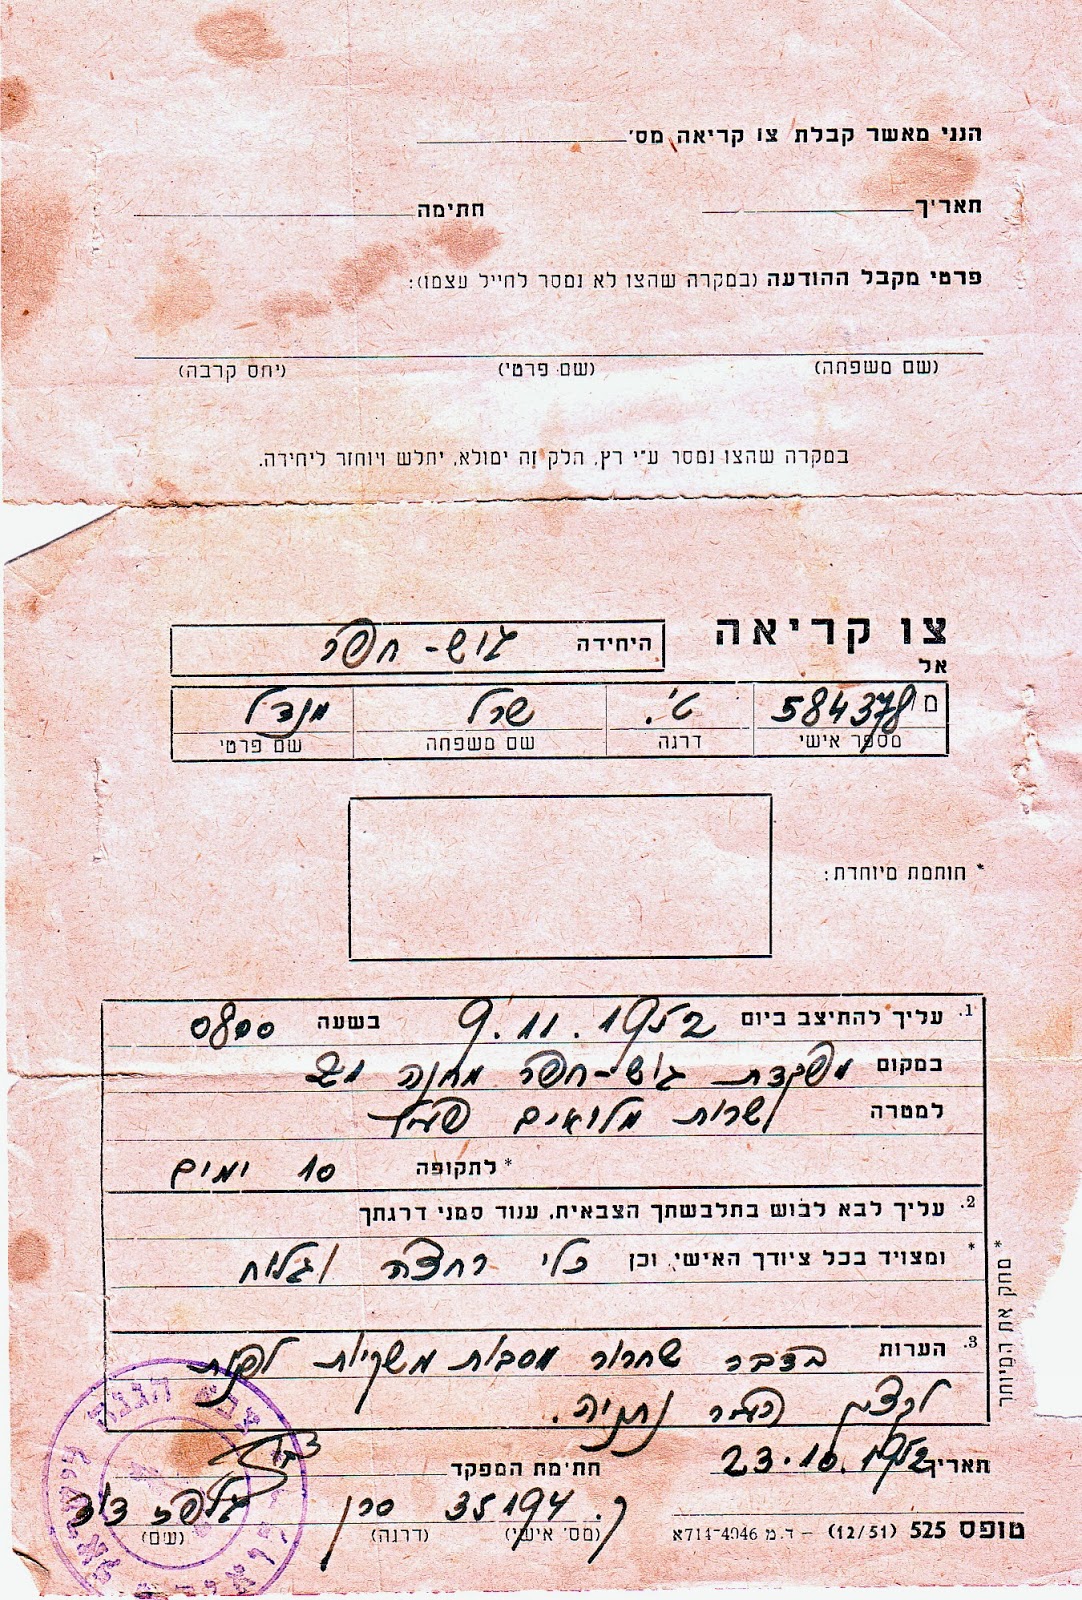 הנני מאשר קבלת צו קריאה מס׳
תאריך חתימה
פרטי מקבל ההודעה (במקרה שהצו לא נמסר לחייל עצמו):
(שם משפחה) (שם פרטי) (יחס קרבה)
במקרה שהצו נמסר ע״י רץ, חלק זה ימולא, יתלש ויוחזר ליחידה.
צו קריאה היחידה גוש-חפר
אל
מ 584378 ט׳. שרל מנדל
מספר אישי דרגה שם משפחה שם פרטי
* חותמת מיוחדת:
1. עליך להתיצב ביום 9.11.1952 בשעה 0800
במקום מפקדת גוש-חפר מחנה 21
למטרה שרות מלואים פעיל
* לתקופה 10 ימים
2. עליך לבא לבוש בתלבשתך הצבאית, ענוד סמני דרגתך
* ומצויד בכל ציודך האישי, וכן כלי רחצה וגלוח
* מחק את המיותר
3. הערות בדבר שחרור מסבות משקיות לפנות
לקצין העיר נתניה.
תאריך 23.10.1952 חתימת המפקד
35194 סרן דוד
(מס׳ אישי) (דרגה) (שם)
טופס 525 (12/51) – ד.מ 714-4046א
צבא הגנה לישראל